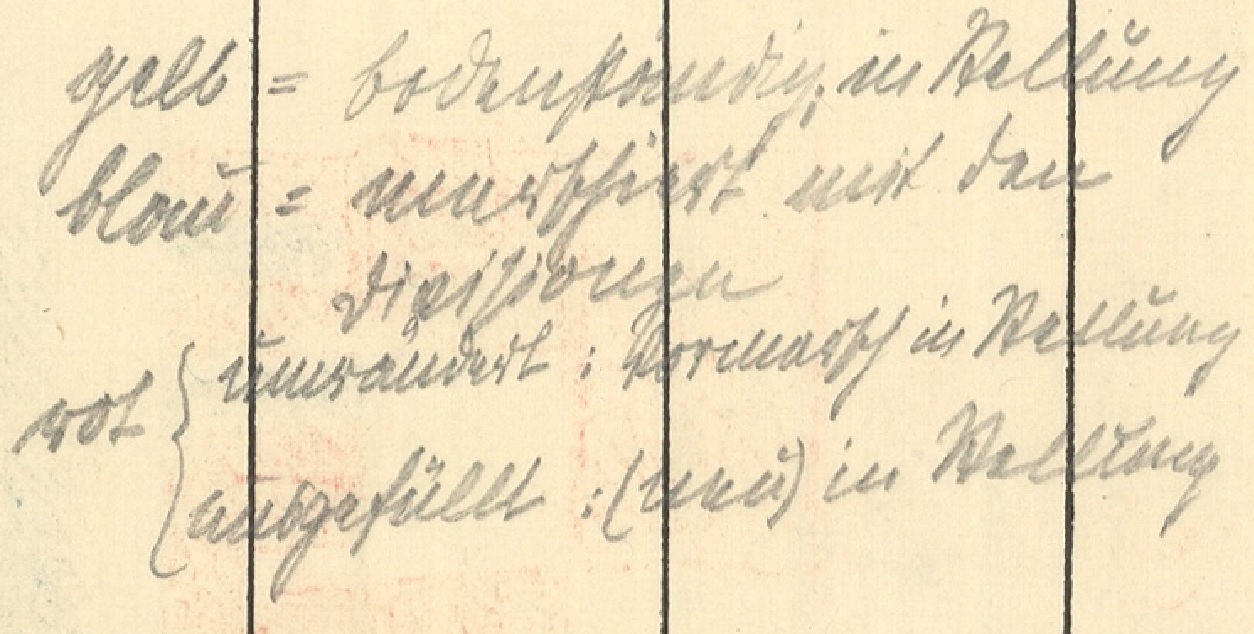 gelb = bodenständig, in Stellung
blau = marschiert mit den
Divisionen
rot { umrändert : Vormarsch in Stellung
ausgefüllt : (neu) in Stellung